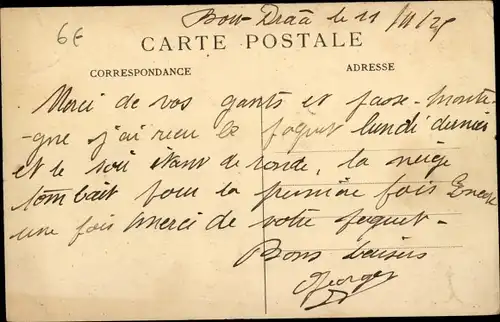 Bou-Draâ le 11/11/25
6€
CARTE POSTALE
CORRESPONDANCE
ADRESSE
Merci de vos gants et passe-monta
-gne j'ai reçu le paquet lundi dernier
et le soir étant de ronde, la neige
tombait pour la première fois Encore
une fois merci de votre paquet-
Bons baisers
Georges